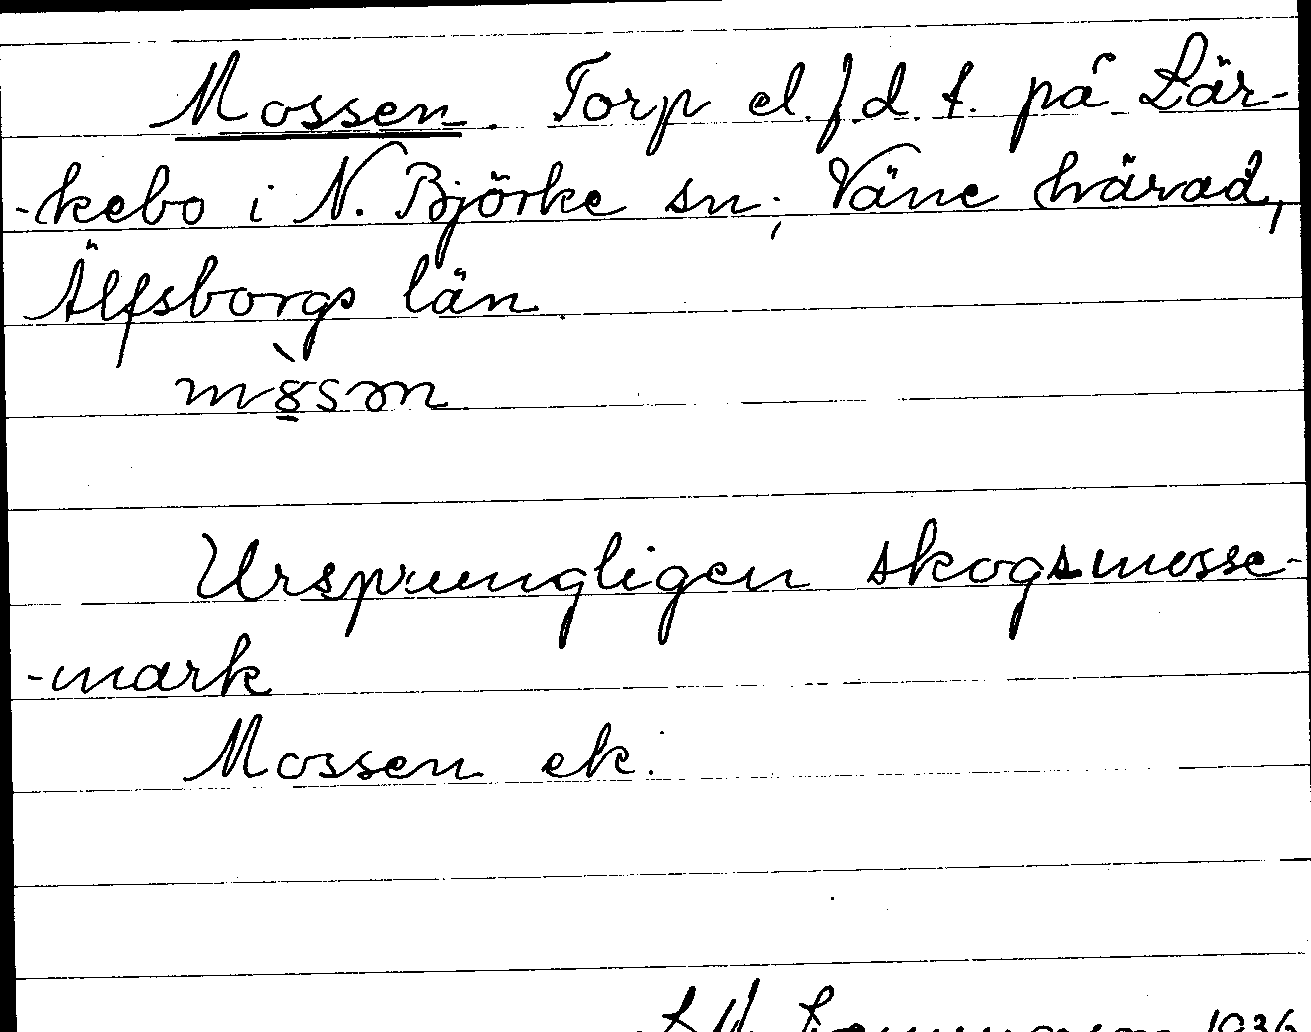 Mossen. Torp el. f.d. t. på Lär-
-kebo i N. Björke sn; Väne härad,
Älfsborgs län.
Ursprungligen skogsmosse-
-mark
Mossen ek.
1936